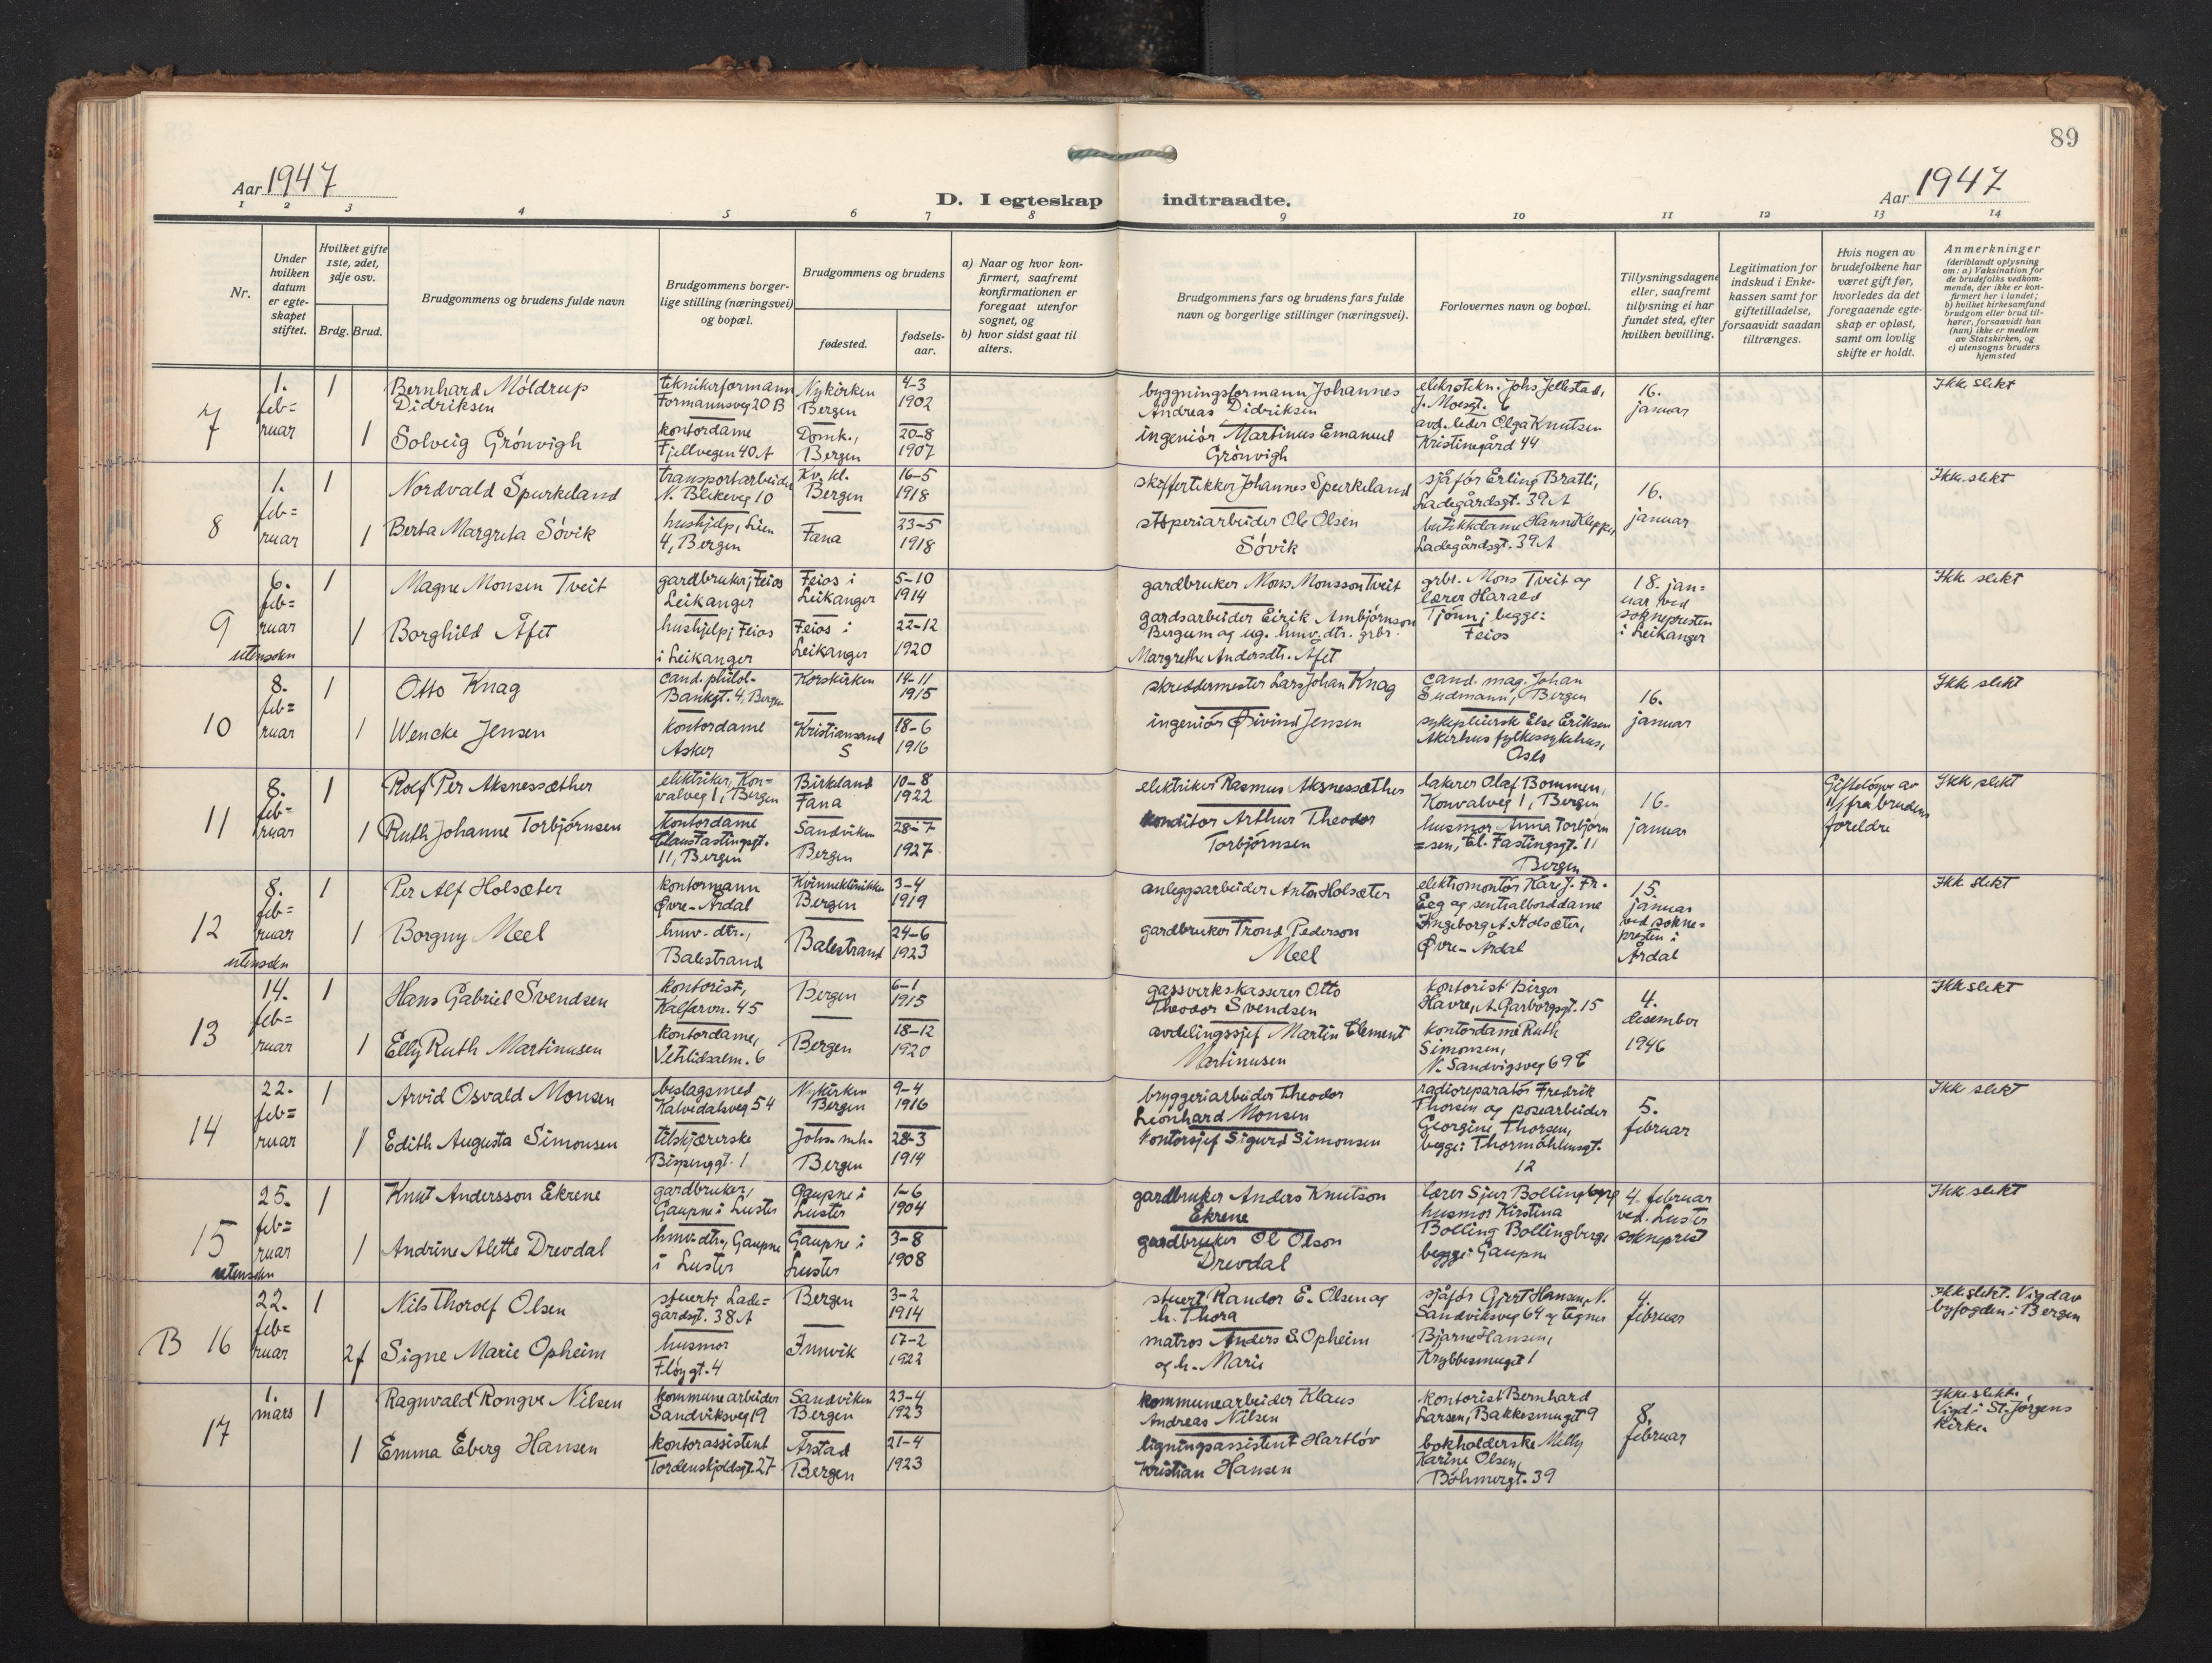 89
Aar 1947
D. I egteskap indtraadte.
Aar 1947
1 2 3 4 5 6 7 8 9 10 11 12 13 14
Nr.
Under hvilken datum er egteskapet stiftet.
Hvilket gifte 1ste, 2det, 3dje osv.
Brdg. Brud.
Brudgommens og brudens fulde navn
Brudgommens borgerlige stilling (næringsvei) og bopæl.
Brudgommens og brudens
fødested.
fødselsaar.
a) Naar og hvor konfirmert, saafremt konfirmationen er foregaat utenfor sognet, og
b) hvor sidst gaat til alters.
Brudgommens fars og brudens fars fulde navn og borgerlige stillinger (næringsvei).
Forlovernes navn og bopæl.
Tillysningsdagene eller, saafremt tillysning ei har fundet sted, efter hvilken bevilling.
Legitimation for indskud i Enkekassen samt for giftetilladelse, forsaavidt saadan tiltrænges.
Hvis nogen av brudefolkene har været gift før, hvorledes da det foregaaende egteskap er opløst, samt om lovlig skifte er holdt.
Anmerkninger
(deriblandt oplysning om: a) Vaksination for de brudefolks vedkommende, der ikke er konfirmert her i landet;
b) hvilket kirkesamfund brudgom eller brud tilhører, forsaavidt han (hun) ikke er medlem av Statskirken, og
c) utensogns bruders hjemsted
7
1. feb=ruar
1
Bernhard Móldrup Didriksen
teknikerformann Formannsveg 20 B
Nykirken Bergen
4-3 1902
byggningsformann Johannes Andreas Didriksen
elektrotekn. Johs Jellestad, J. Moesgt. 6
16. januar
Ikke slekt
1
Solveig Grónvigh
kontordame Fjellvegen 40 A
Domk., Bergen
20-8 1907
ingeniór Martinus Emanuel Grónvigh
avd. leder Olga Knutsen Kristinegård 44
8
1. feb=ruar
1
Nordvald Spurkeland
transportarbeider N. Blekeveg 10
Kv. kl. Bergen
16-5 1918
skiffertekker Johannes Spurkeland
sjåfór Erling Bratli, Ladegårdsgt. 39 A
16. januar
Ikke slekt
1
Berta Margreta Sóvik
hushjelp, Lien 4, Bergen
Fana
23-5 1918
stóperiarbeider Ole Olsen Sóvik
butikkdame Hanna Kleppe, Ladegårdsgt. 39 A
9 utensokn
6. feb=ruar
1
Magne Monsen Tveit
gardbruker; Feios Leikanger
Feios i Leikanger
5-10 1914
gardbruker Mons Monsson Tveit
grbr. Mons Tveit og lærer Harald Tjónn; begge: Feios
18. jan=uar ved soknepresten i Leikanger
Ikke slekt
1
Borghild Åfet
hushjelp; Feios i Leikanger
Feios i Leikanger
22-12 1920
gardsarbeider Eirik Ambjórnson Bergum og ug. hmv. dtr. grbr. Margrethe Andersdtr. Afet
10
8. feb=ruar
1
Otto Knag
cand. philol. Bankgt. 4, Bergen
Korskirken
14-11 1915
skreddermester Lars Johan Knag
cand. mag. Johan Sudmann, Bergen
16. januar
Ikke slekt
1
Wencke Jensen
kontordame Asker
Kristiansand S
18-6 1916
ingeniór Øivind Jensen
sykepleierske Else Eriksen Akerhus fylkessykehus, Oslo
11
8. feb=ruar
1
Rolf Per Aksnessæther
elektriker, Kon=valveg 1, Bergen
Birkeland Fana
10-8 1922
elektriker Rasmus Aksnessæther
lakerer Olaf Bommen, Konvalveg 1, Bergen
16. januar
Giftelógn av 11/1 fra brudens foreldre
Ikke slekt
1
Ruth Johanne Torbjórnsen
kontordame Claus Fastingsgt. 11, Bergen
Sandviken Bergen
28-7 1927
konditor Arthur Theodor Torbjórnsen
husmor Anna Torbjórn=sen, Cl. Fastingsgt. 11 Bergen
12 utensokn
8. feb=ruar
1
Per Alf Holsæter
kontormann Øvre-Årdal
Kvinneklinikken Bergen
3-4 1919
anleggsarbeider Anton Holsæter
elektromontór Kåre J. Fr. Eeg og sentralborddame Ingeborg A. Holsæter, Øvre-Årdal
15. januar ved sokne=presten i Årdal
Ikke slekt
1
Borgny Meel
hmv. dtr., Balestrand
Balestrand
24-6 1923
gardbruker Trond Pederson Meel
13
14. feb=ruar
1
Hans Gabriel Svendsen
kontorist, Kalfarvn. 45
Bergen
6-1 1915
gassverkskasserer Otto Theodor Svendsen
kontorist Birger Havre, A. Garborgsgt. 15
4. desember 1946
Ikke slekt
1
Elly Ruth Martinusen
kontordame, Vetrlidsalm. 6
Bergen
18-12 1920
avdelingssjef Martin Clement Martinusen
kontordame Ruth Simonsen, N. Sandvigsveg 69 C
14
22. feb=ruar
1
Arvid Osvald Monsen
beslagsmed Kalvedalsveg 54
Nykirken Bergen
9-4 1916
bryggeriarbeider Theodor Leonhard Monsen
radioreparatór Fredrik Thorsen og posearbeider Georgine Thorsen, begge: Thormóhlensgt. 12
5. februar
Ikke slekt
1
Edith Augusta Simonsen
tilskjærerske Bispenggt. 1
Johs. mh. Bergen
28-3 1914
kontorsjef Sigurd Simonsen
15 utensokn
25. feb=ruar
1
Knut Andersson Ekrene
gardbruker, Gaupne i Luster
Gaupne i Luster
1-6 1904
gardbruker Anders Knutson Ekrene
lærer Sjur Bollingberg husmor Kirstina Bolling Bollingberg begge: Gaupne
4. februar ved Luster sokneprest
Ikke slekt
1
Andrine Alette Drevdal
hmv. dtr., Gaupne i Luster
Gaupne i Luster
3-8 1908
gardbruker Ole Olson Drevdal
B 16
22. feb=ruar
1
Nils Thorolf Olsen
stuert; Lade=gårdsgt. 38 A
Bergen
3-2 1914
stuert Randor E. Olsen og h. Thora
sjåfór Gjert Hansen, N. Sandviksveg 64 og tegner Bjarne Hansen, Krybbesmuget 1
4. februar
Ikke slekt. Vigd av byfogden i Bergen
2f
Signe Marie Opheim
husmor Flóygt. 4
Innvik
17-2 1922
matros Anders S. Opheim og h. Marie
17
1. mars
1
Ragnvald Rongve Nilsen
kommunearbeider Sandviksveg 19
Sandviken Bergen
23-4 1923
kommunearbeider Klaus Andreas Nilsen
kontorist Bernhard Larsen, Bakkesmuget 9
8. februar
Ikke slekt, Vigd i St. Jórgens kirke.
1
Emma Eberg Hansen
kontorassistent Tordenskjoldsgt. 27
Årstad Bergen
21-4 1923
ligningsassistent Hartlóv Kristian Hansen
bokholderske Milly Karine Olsen, Bóhmergt. 39